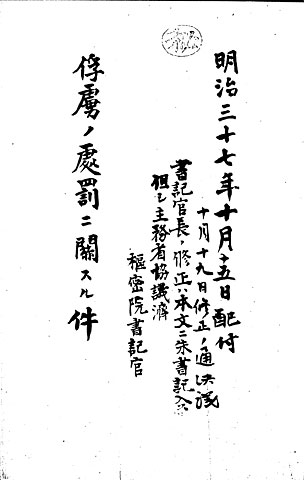 明治三十七年十月十五日配付
十月十九日修正ノ通決議
書記官長ノ修正ハ本文ニ朱書記入ス
但シ主務省協議済
枢密院書記官
俘虜ノ處罰ニ關スル件